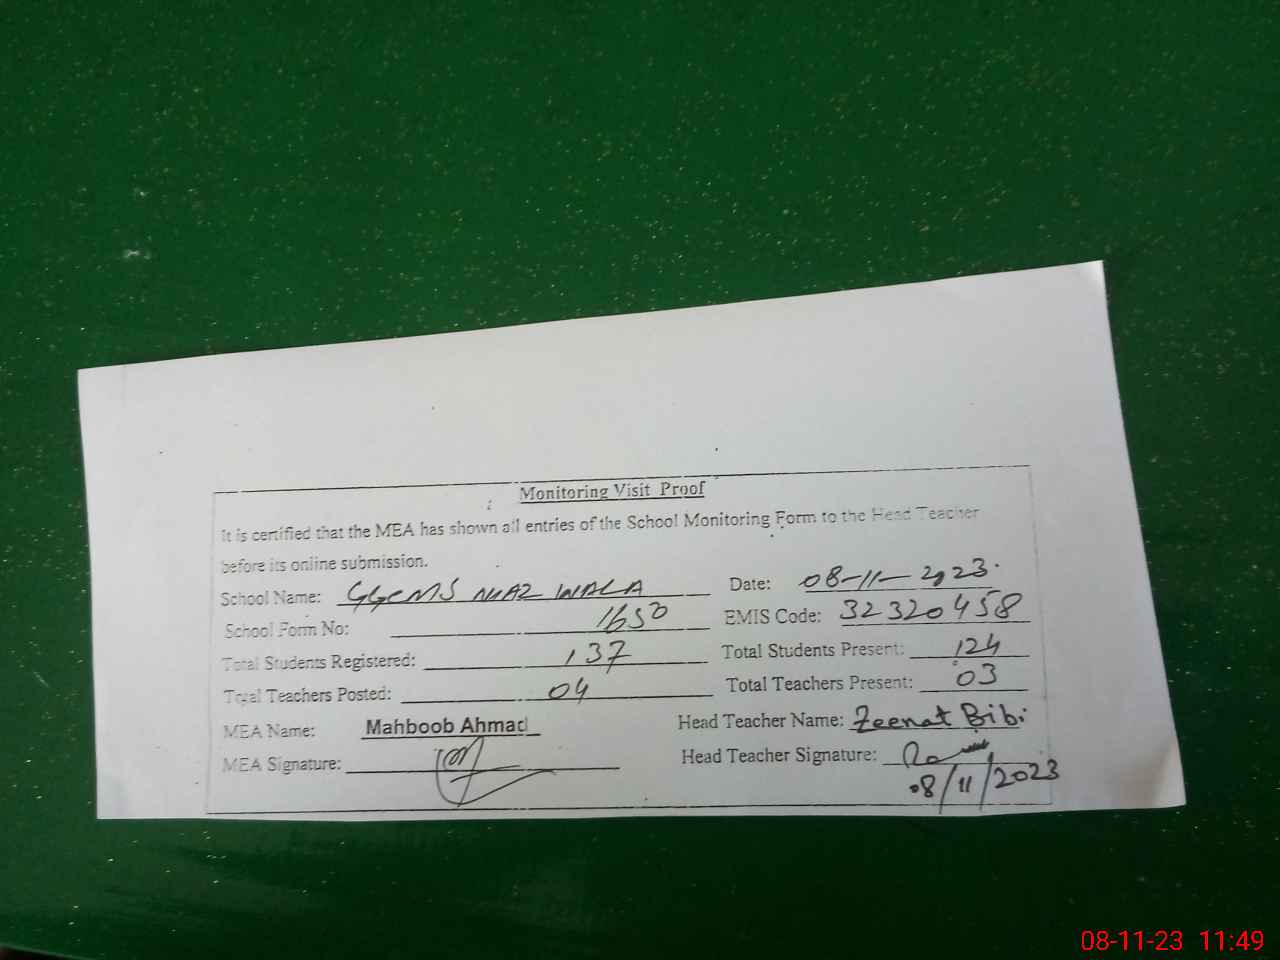 Monitoring Visit Proof
It is certified that the MEA has shown all entries of the School Monitoring Form to the Head Teacher
before its online submission.
School Name: GGCMS NIAZ WALA Date: 08-11-2023.
School Form No: 1650 EMIS Code: 32320458
Total Students Registered: 137 Total Students Present: 124
Total Teachers Posted: 04 Total Teachers Present: 03
MEA Name: Mahboob Ahmad Head Teacher Name: Zeenat Bibi
MEA Signature: Head Teacher Signature:
08/11/2023
08-11-23 11:49